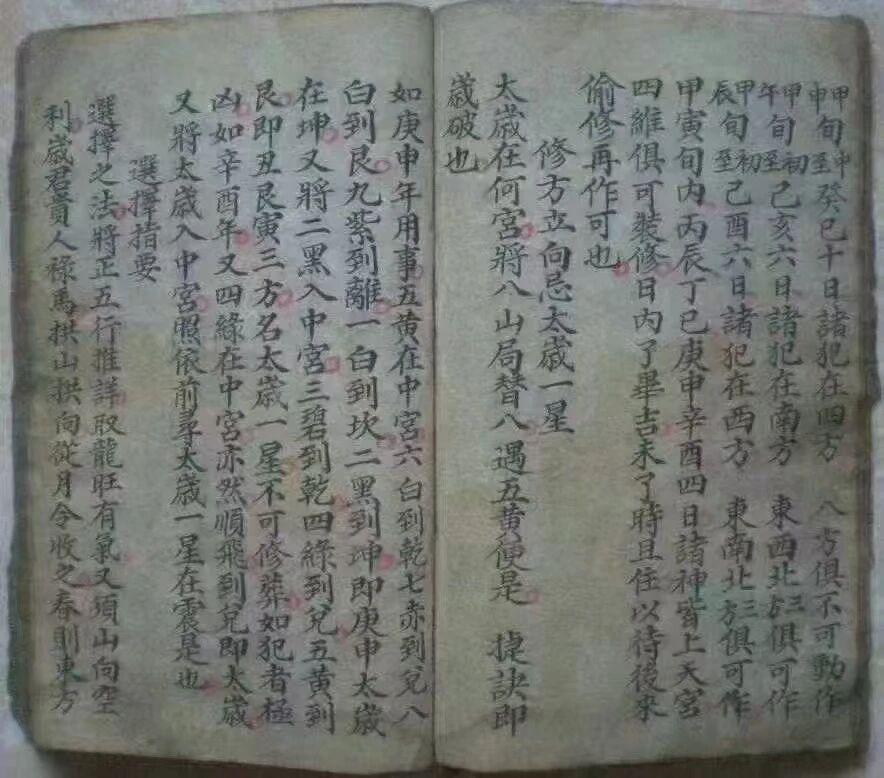 甲旬中申至癸巳十日諸犯在四方　八方俱不可動作
甲旬初午至己亥六日諸犯在南方　東西北三方俱可作
甲旬初辰至己酉六日諸犯在西方　東南北三方俱可作
甲寅旬内丙辰丁巳庚申辛酉四日諸神皆上天宮
四維俱可裝修日内了畢吉未了時且住以待後來
偷修再作可也
修方立向忌太歲一星
太歲在何宮將八山局替入遇五黄便是　㨗訣即
歲破也
如庚申年用事五黄在中宮六白到乾七赤到兌八
白到艮九紫到離一白到坎二黑到坤即庚申太歲
在坤又將二黑入中宮三碧到乾四綠到兌五黄到
艮即丑艮寅三方名太歲一星不可修葬如犯者極
凶如辛酉年又四緑在中宮亦然順飛到兌即太歲
又將太歲入中宮照依前尋太歲一星在震是也
選擇指要
選擇之法將正五行推詳取龍旺有氣又須山向空
利歲君貴人祿馬拱山拱向從月令收之春則東方